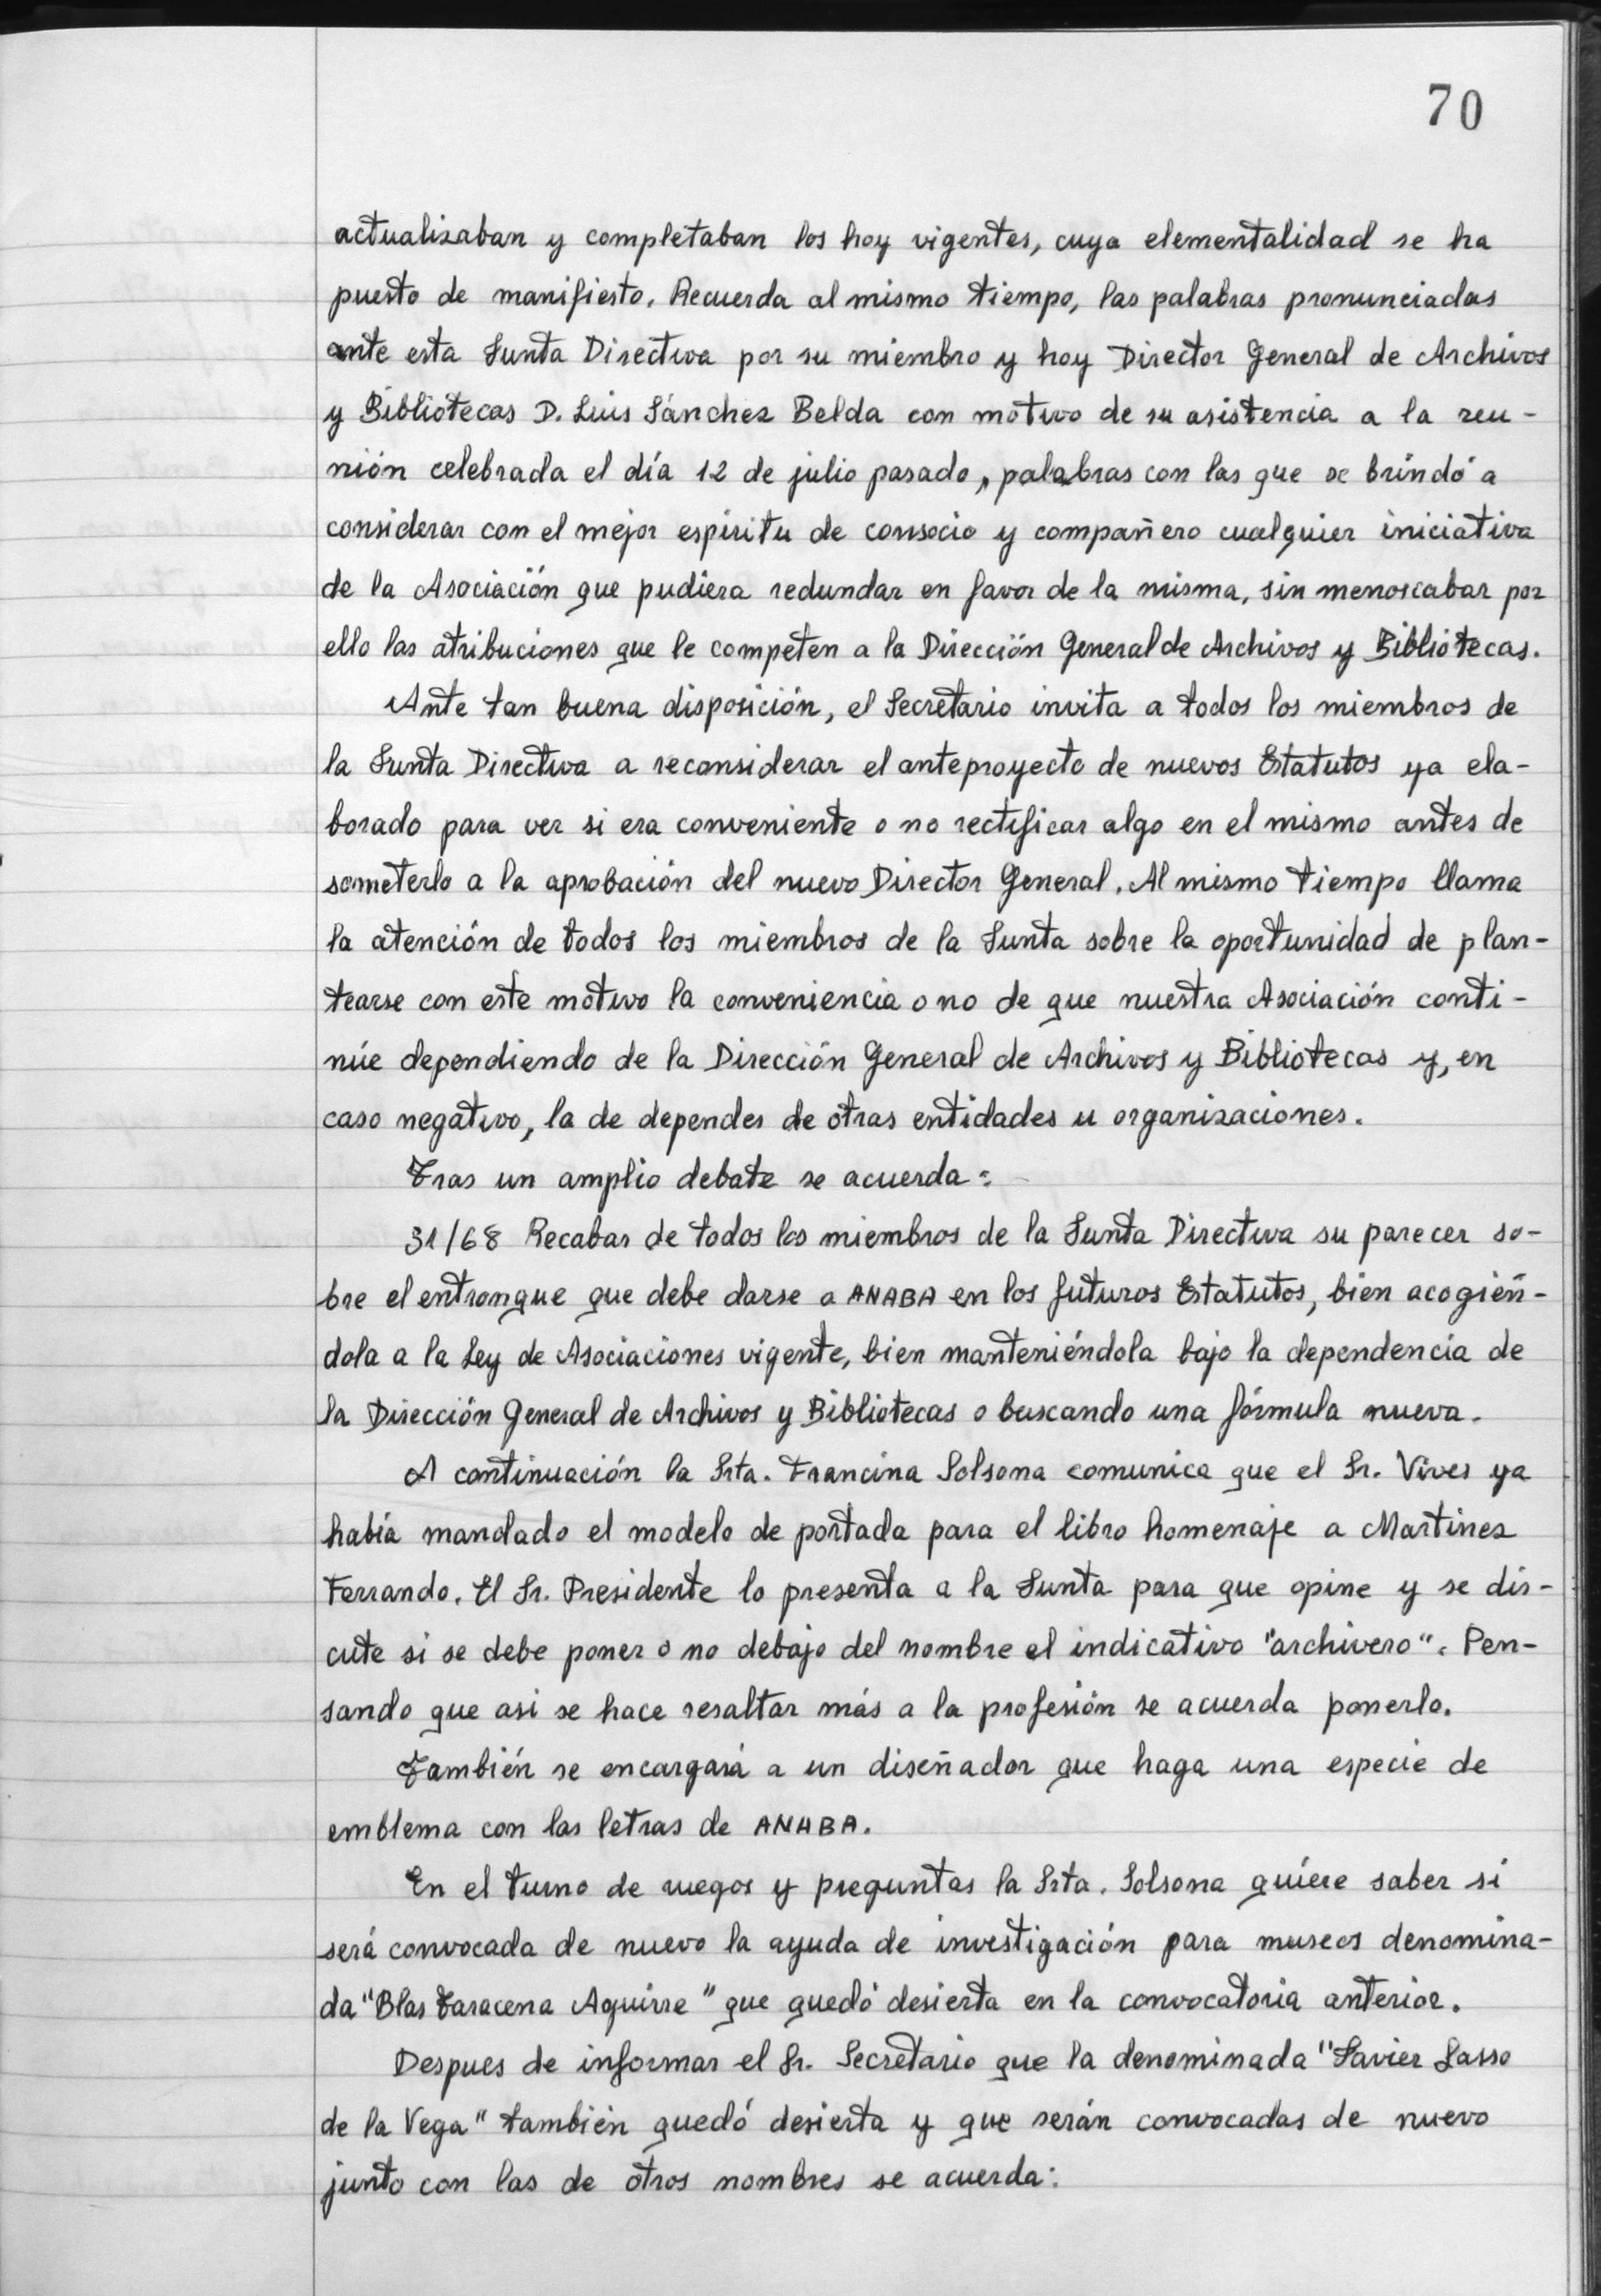 70
actualizaban y completaban los hoy vigentes, cuya elementalidad se ha
puesto de manifiesto. Recuerda al mismo tiempo, las palabras pronunciadas
ante esta Junta Directiva por su miembro y hoy Director General de Archivos
y Bibliotecas D. Luis Sánchez Belda con motivo de su asistencia a la reu-
nión celebrada el día 12 de julio pasado, palabras con las que se brindó a
considerar con el mejor espíritu de consocio y compañero cualquier iniciativa
de la Asociación que pudiera redundar en favor de la misma, sin menoscabar por
ello las atribuciones que le competen a la Dirección General de Archivos y Bibliotecas.
Ante tan buena disposición, el Secretario invita a todos los miembros de
la Junta Directiva a reconsiderar el anteproyecto de nuevos Estatutos ya ela-
borado para ver si era conveniente o no rectificar algo en el mismo antes de
someterlo a la aprobación del nuevo Director General. Al mismo tiempo llama
la atención de todos los miembros de la Junta sobre la oportunidad de plan-
tearse con este motivo la conveniencia o no de que nuestra Asociación conti-
núe dependiendo de la Dirección General de Archivos y Bibliotecas y, en
caso negativo, la de depender de otras entidades u organizaciones.
Tras un amplio debate se acuerda:
31/68 Recabar de todos los miembros de la Junta Directiva su parecer so-
bre el entronque que debe darse a ANABA en los futuros Estatutos, bien acogién-
dola a la Ley de Asociaciones vigente, bien manteniéndola bajo la dependencia de
la Dirección General de Archivos y Bibliotecas o buscando una fórmula nueva.
A continuación la Srta. Francina Solsona comunica que el Sr. Vives ya
había mandado el modelo de portada para el libro homenaje a Martinez
Ferrando. El Sr. Presidente lo presenta a la Junta para que opine y se dis-
cute si se debe poner o no debajo del nombre el indicativo "archivero". Pen-
sando que asi se hace resaltar más a la profesión se acuerda ponerlo.
También se encargará a un diseñador que haga una especie de
emblema con las letras de ANABA.
En el turno de ruegos y preguntas la Srta. Solsona quiere saber si
será convocada de nuevo la ayuda de investigación para museos denomina-
da "Blas Taracena Aguirre" que quedó desierta en la convocatoria anterior.
Despues de informar el Sr. Secretario que la denominada "Javier Lasso
de la Vega" también quedó desierta y que serán convocadas de nuevo
junto con las de otros nombres se acuerda: